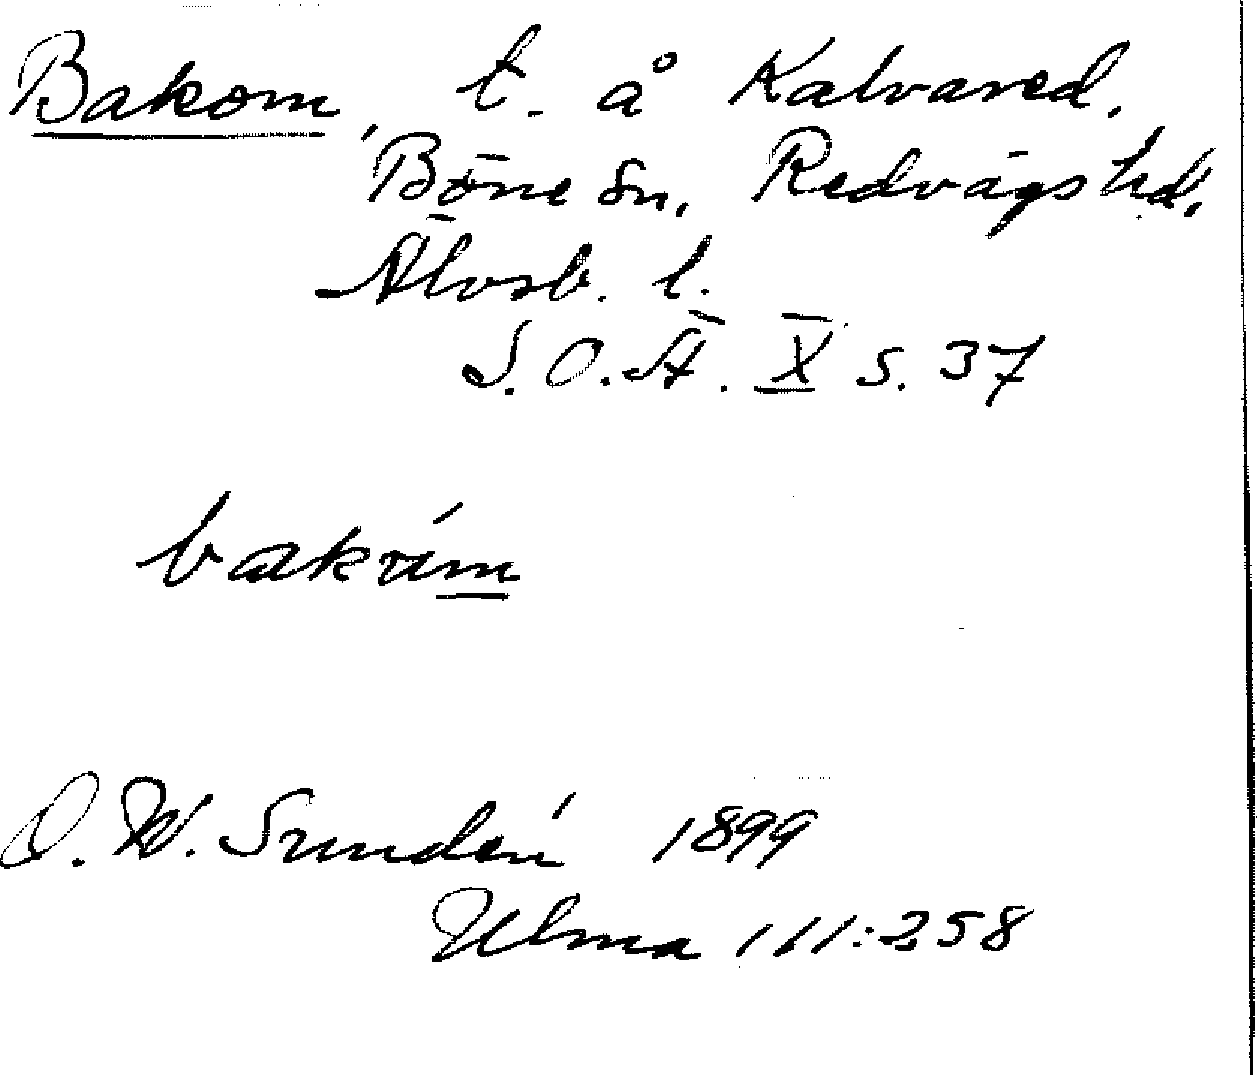 Bakom, t. å Kalvared.
Böne sn, Redvägs hd,
Älvsb. l.
S.O.Ä. X s. 37
bakám
D. W. Sundén 1899
Ulma 111:258